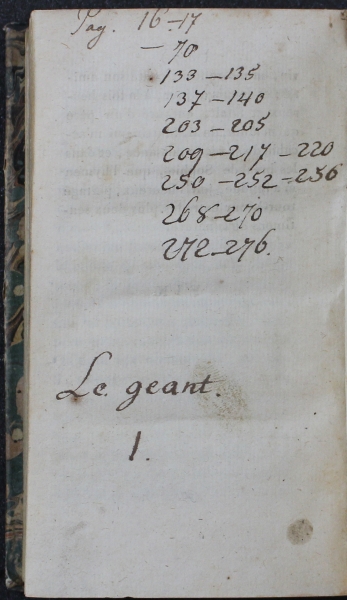 Pag. 16-17
- 70
133-135
137-140
203-205
209-217-220
250-252-256
268-270
272-276.
Le geant.
1.